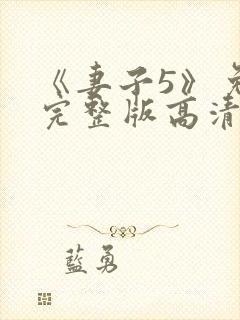 《妻子5》免
完整版高清
蓝勇